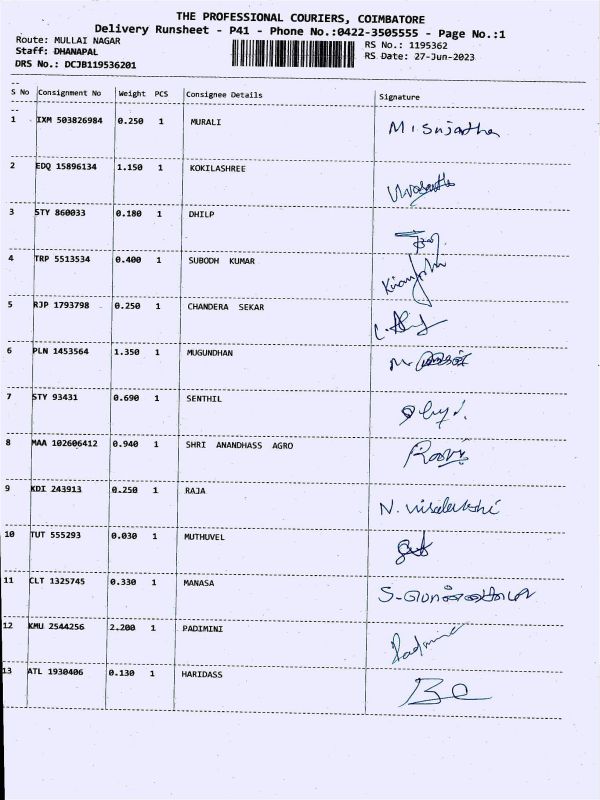 THE PROFESSIONAL COURIERS, COIMBATORE
Delivery Runsheet - P41 - Phone No.:0422-3505555 - Page No.:1
Route: MULLAI NAGAR
RS No.: 1195362
Staff: DHANAPAL
RS Date: 27-Jun-2023
DRS No.: DCJB119536201
S No Consignment No Weight PCS Consignee Details Signature
1 IXM 503826984 0.250 1 MURALI M. Sujatha
2 EDQ 15896134 1.150 1 KOKILASHREE
3 STY 860033 0.180 1 DHILP
4 TRP 5513534 0.400 1 SUBODH KUMAR
5 RJP 1793798 0.250 1 CHANDERA SEKAR
6 PLN 1453564 1.350 1 MUGUNDHAN
7 STY 93431 0.690 1 SENTHIL
8 MAA 102606412 0.940 1 SHRI ANANDHASS AGRO
9 KDI 243913 0.250 1 RAJA N. Visalakshi
10 TUT 555293 0.030 1 MUTHUVEL
11 CLT 1325745 0.330 1 MANASA
12 KMU 2544256 2.200 1 PADIMINI
13 ATL 1930406 0.130 1 HARIDASS